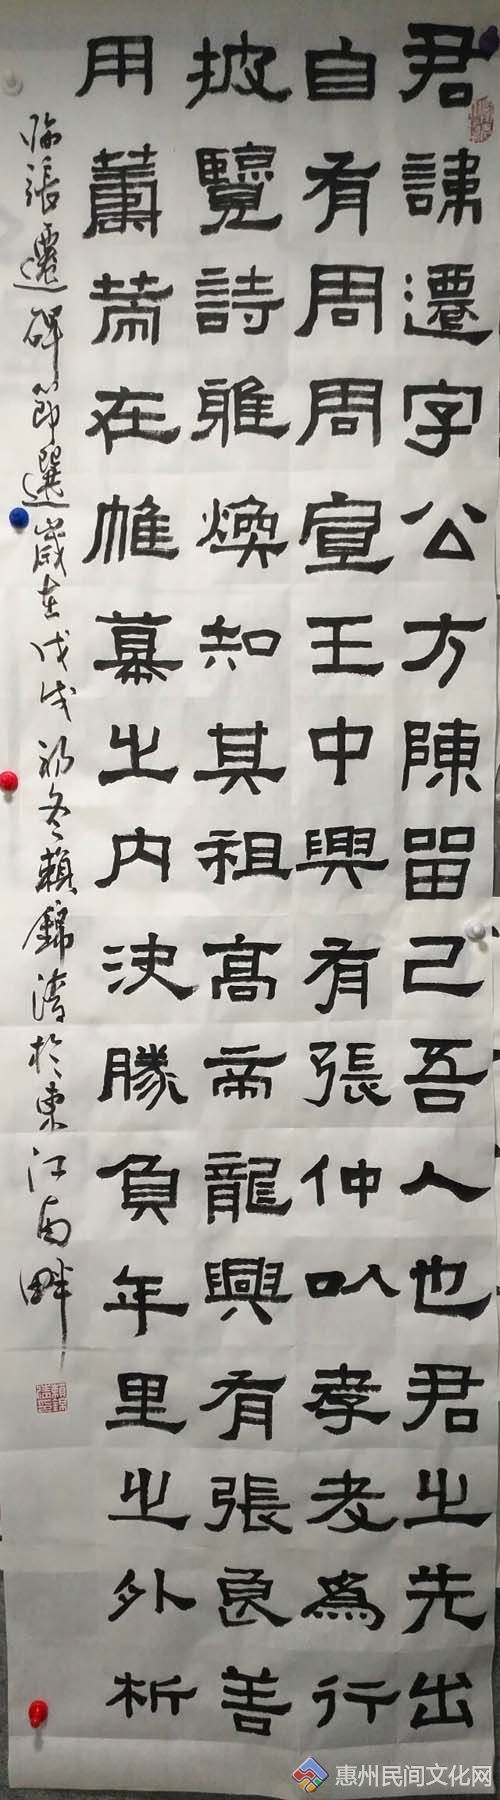 君諱遷字公方陳留己吾人也君之先出
自有周周宣王中興有張仲以孝友為行
披覽詩雅煥知其祖高帝龍興有張良善
用籌策在帷幕之內決勝負年里之外析
臨張遷碑節選歲在戊戌初冬賴錦於東江南畔
惠州民间文化网